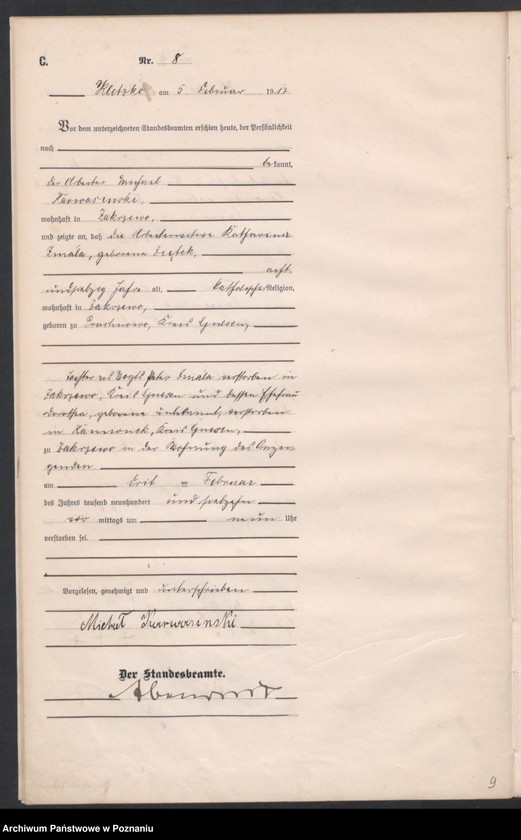 C.
Nr. 8
Kletzko am 5. Februar 1917
Vor dem unterzeichneten Standesbeamten erschien heute, der Persönlichkeit
nach
bekannt,
der Arbeiter Michael
wohnhaft in Zakrzewo,
und zeigte an, daß die Katharina
Smala, geborene
acht
undsiebzig Jahre alt, katholischer Religion,
wohnhaft in Zakrzewo,
geboren zu Kreis Gnesen,
Tochter des Vogts Peter Smala verstorben in
Zakrzewo, Kreis Gnesen und dessen Ehefrau
Dorothea, geborene unbekannt, verstorben
in Kreis Gnesen,
zu Zakrzewo in der Wohnung des Anzei
genden
am Februar
des Jahres tausend neunhundert und siebzehn
vor mittags um neun Uhr
verstorben sei.
Vorgelesen, genehmigt und unterschrieben
Michał Karwasinski
Der Standesbeamte.
9
Archiwum Państwowe w Poznaniu